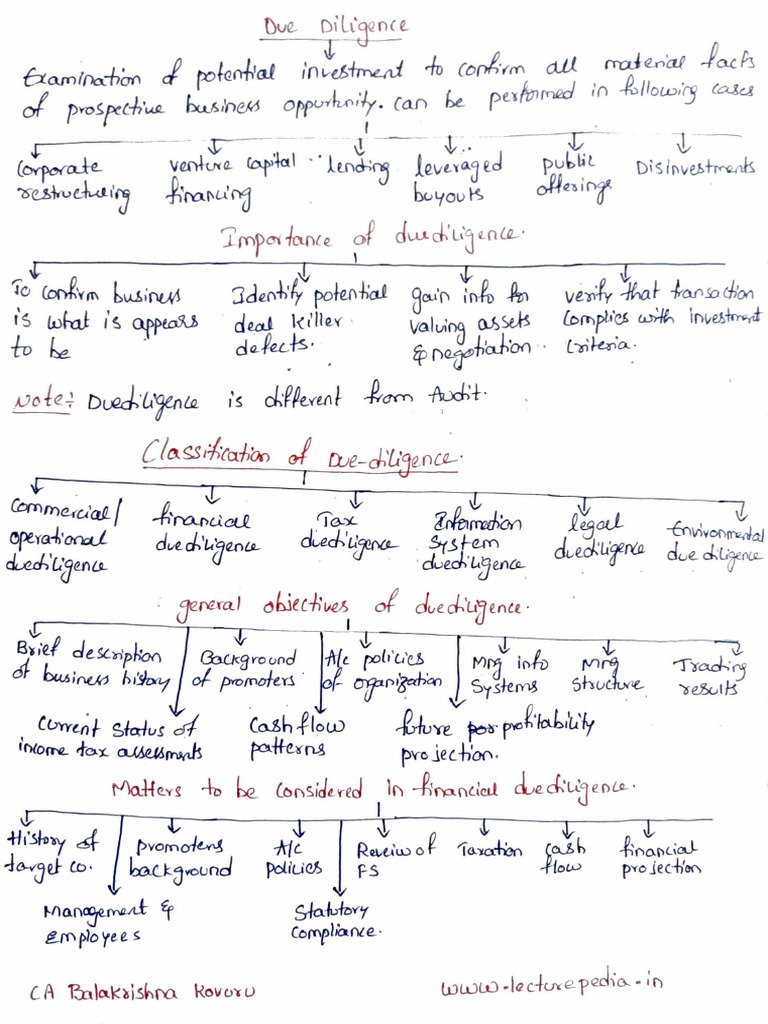 Due Diligence
Examination of potential investment to confirm all material facts
of prospective business opportunity. can be performed in following cases
Corporate restructuring
venture capital financing
lending
leveraged buyouts
public offerings
Disinvestments
Importance of duediligence.
To confirm business is what is appears to be
Identify potential deal killer defects.
gain info for valuing assets & negotiation
verify that transaction complies with investment criteria.
Note:- Duediligence is different from Audit.
Classification of Due-diligence.
Commercial/ operational duediligence
financial duediligence
Tax duediligence
Information System duediligence
legal duediligence
Environmental due diligence
general objectives of duediligence.
Brief description of business history
Background of promoters
A/c policies of organization
Mng info Systems
Mng Structure
Trading results
Current Status of income tax assessments
Cashflow patterns
future profitability projection.
Matters to be considered in financial duediligence.
History of target co.
promoters background
A/c policies
Reveiw of FS
Taxation
Cash flow
financial projection
Management & Employees
Statutory Compliance.
CA Balakrishna Kovuru
www.lecturepedia.in